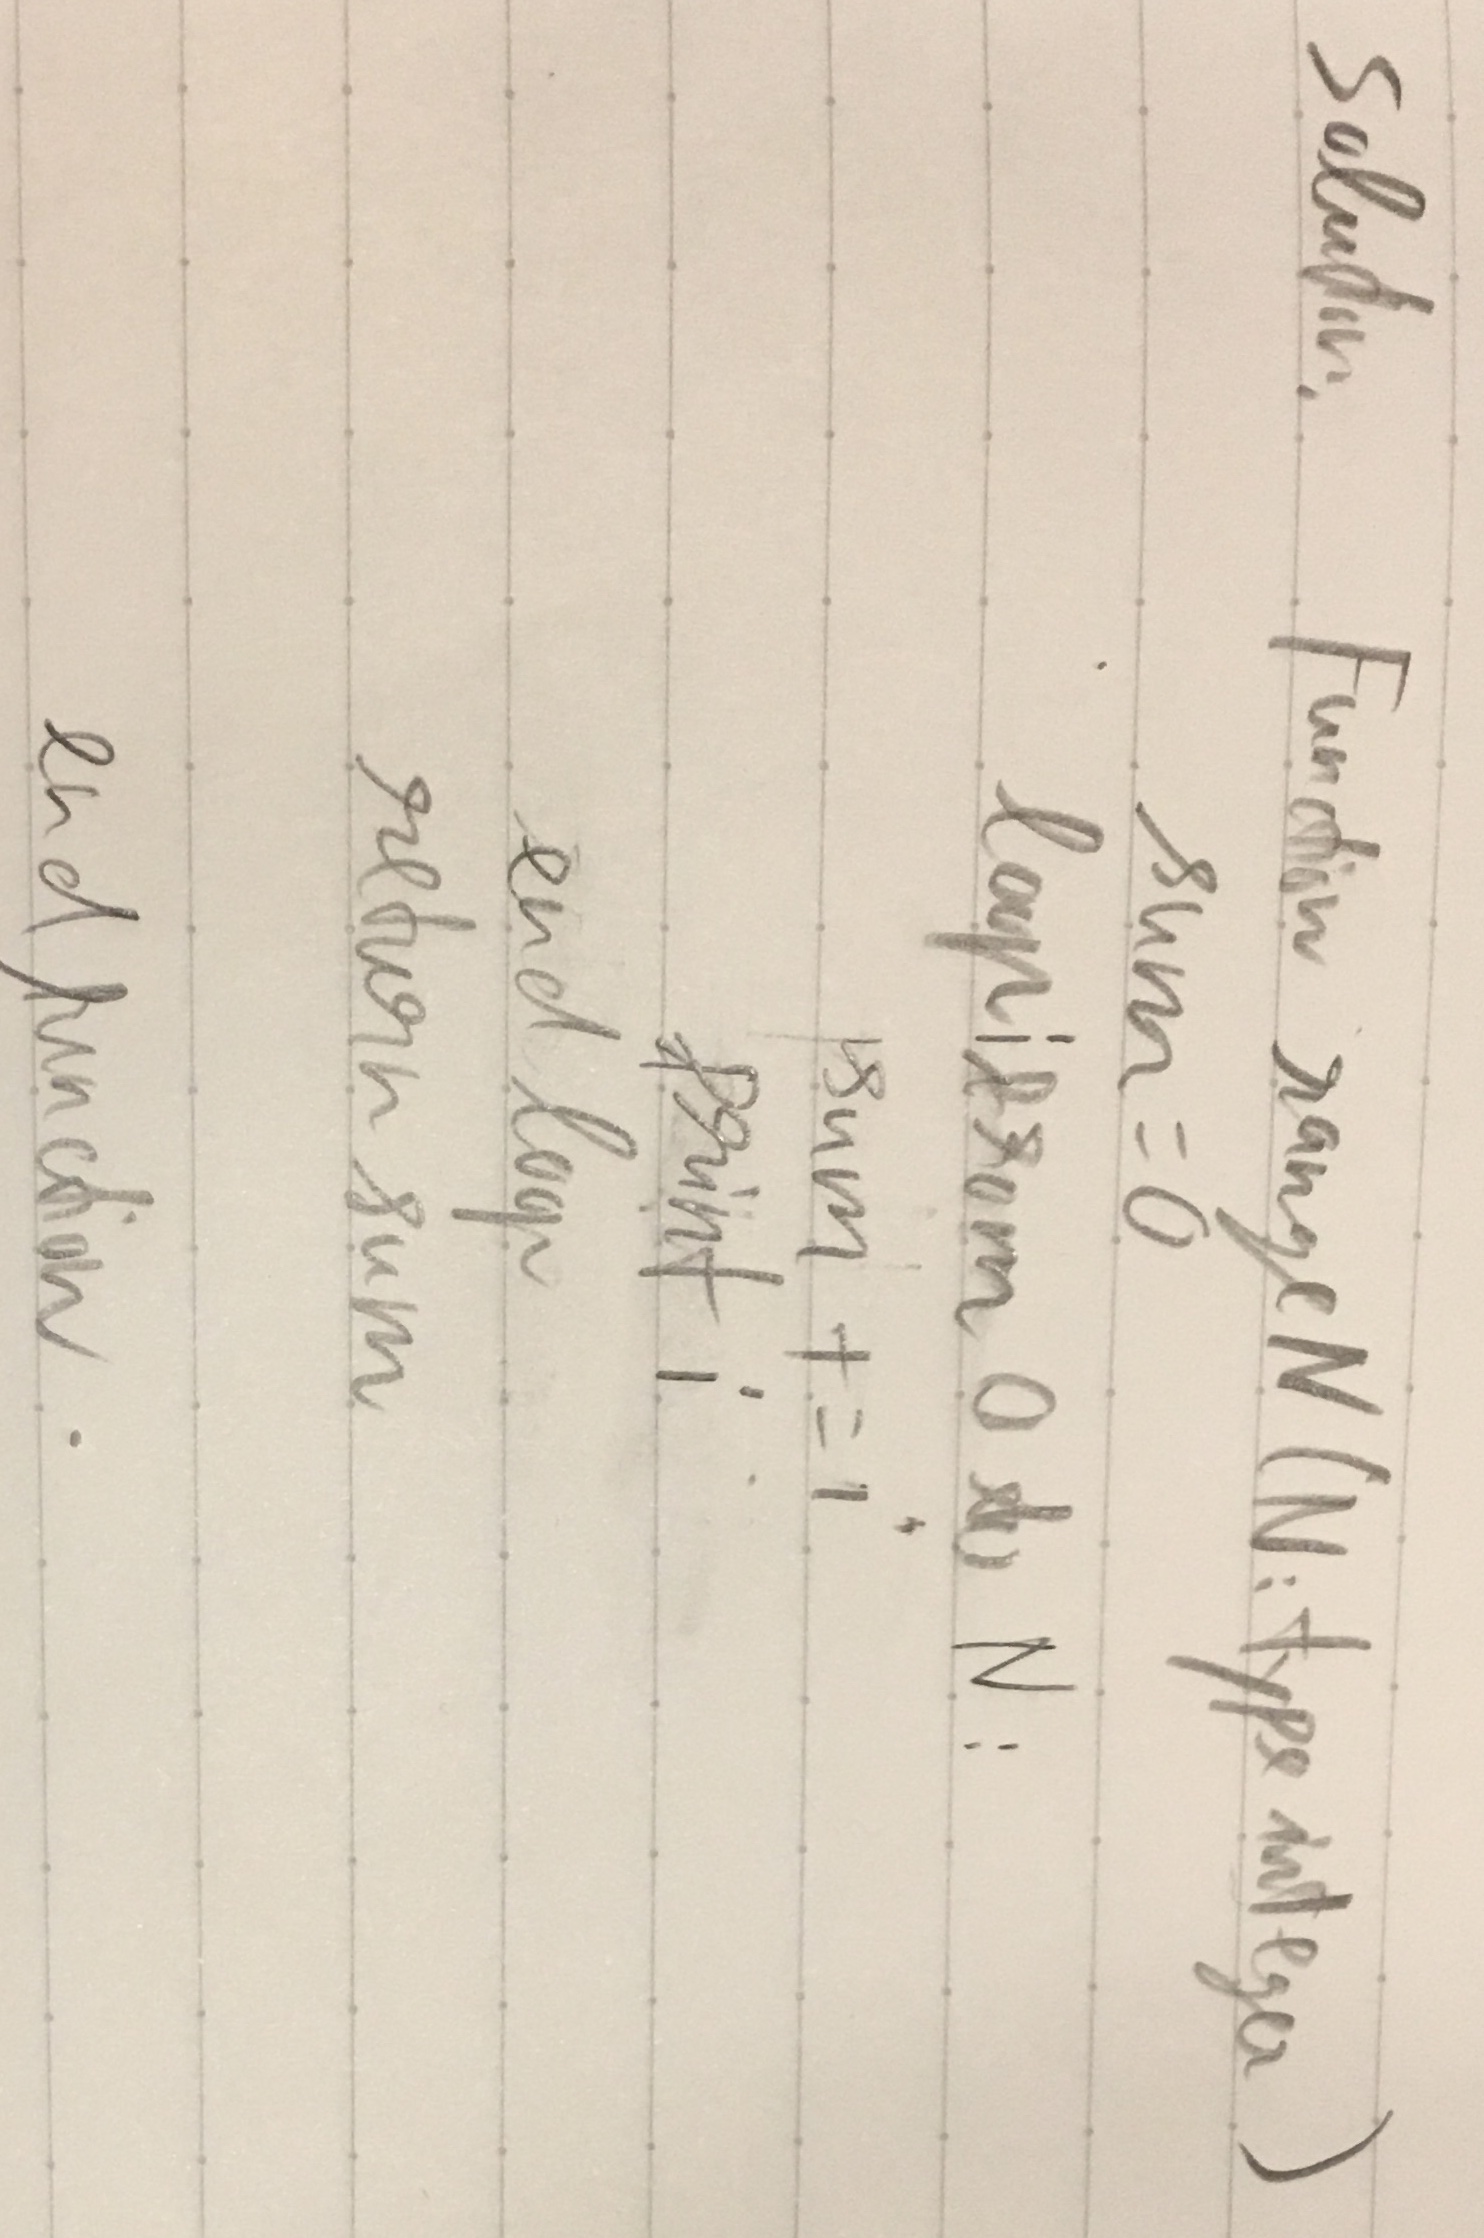 Solution. Function rangeN (N: type integer)
sum = 0
loop i from 0 to N :
sum += i
print i
end loop
return sum
end function.